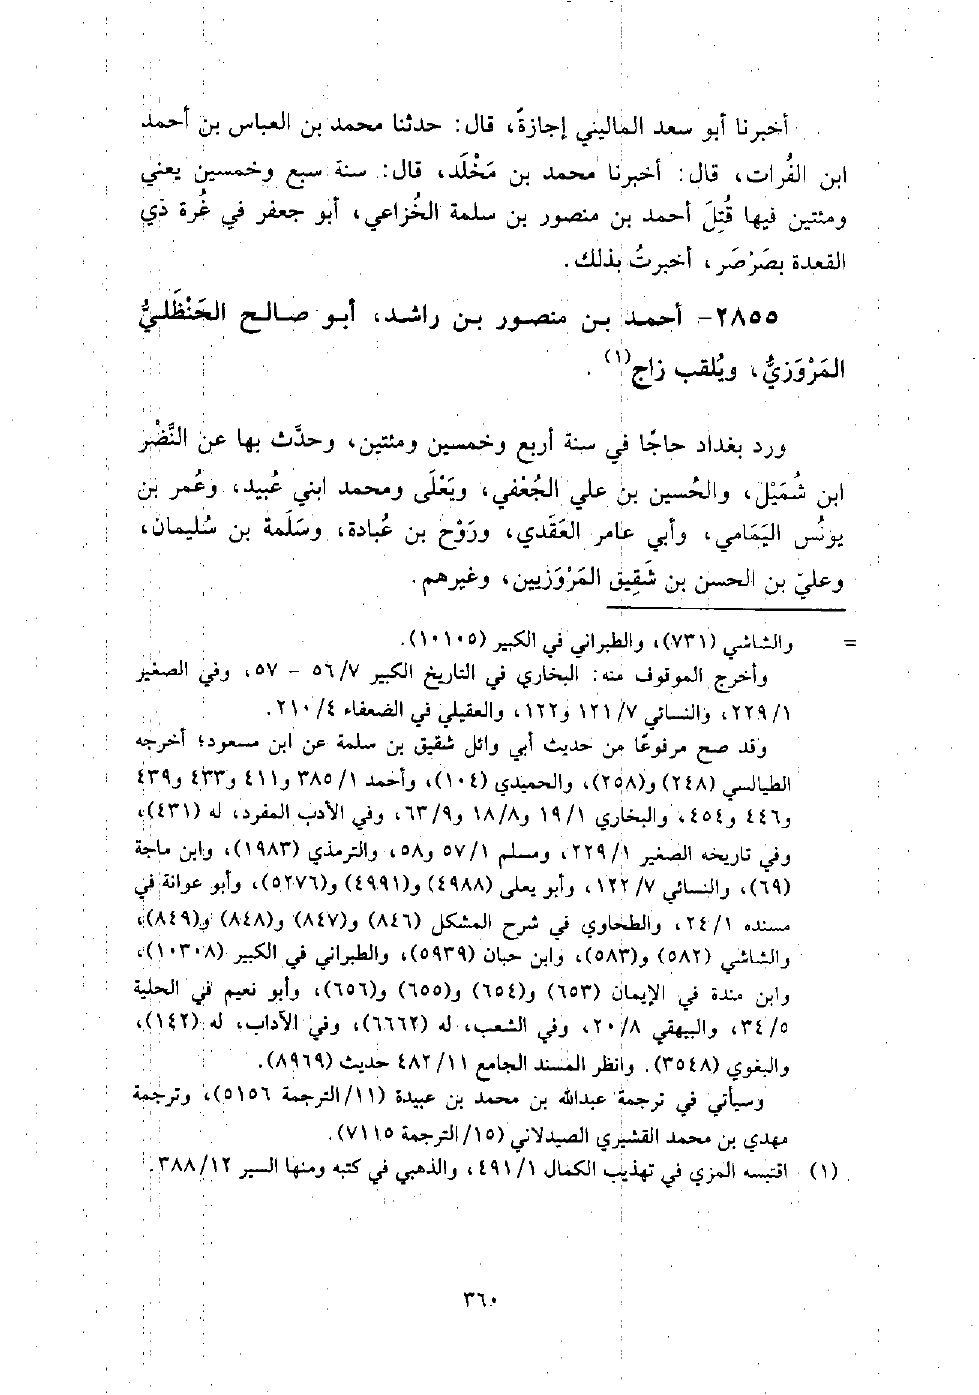 أخبرنا أبو سعد الماليني إجازةً، قال: حدثنا محمد بن العباس بن أحمد
ابن الفُرات، قال: أخبرنا محمد بن مَخْلَد، قال: سنة سبع وخمسين يعني
ومئتين فيها قُتِلَ أحمد بن منصور بن سلمة الخُزاعي، أبو جعفر في غُرة ذي
القعدة بصَرْصَر، أخبرتُ بذلك.
٢٨٥٥- أحمد بن منصور بن راشد، أبو صالح الحَنْظَليُّ
المَرْوَزيُّ، ويُلقب زاج(١).
ورد بغداد حاجًا في سنة أربع وخمسين ومئتين، وحدَّث بها عن النَّضْر
ابن شُمَيْل، والحُسين بن علي الجُعْفي، ويَعْلَى ومحمد ابني عُبيد، وعُمر بن
يونُس اليَمَامي، وأبي عامر العَقَدي، ورَوْح بن عُبادة، وسَلَمة بن سُليمان،
وعليّ بن الحسن بن شَقِيق المَرْوَزيين، وغيرهم.
= والشاشي (٧٣١)، والطبراني في الكبير (١٠١٠٥).
وأخرج الموقوف منه: البخاري في التاريخ الكبير ٧/ ٥٦ - ٥٧، وفي الصغير
١/ ٢٢٩، والنسائي ٧/ ١٢١ و١٢٢، والعقيلي في الضعفاء ٤/ ٢١٠.
وقد صح مرفوعًا من حديث أبي وائل شقيق بن سلمة عن ابن مسعود؛ أخرجه
الطيالسي (٢٤٨) و(٢٥٨)، والحميدي (١٠٤)، وأحمد ١/ ٣٨٥ و٤١١ و٤٣٣ و٤٣٩
و٤٤٦ و٤٥٤، والبخاري ١/ ١٩ و٨/ ١٨ و٩/ ٦٣، وفي الأدب المفرد، له (٤٣١)،
وفي تاريخه الصغير ١/ ٢٢٩، ومسلم ١/ ٥٧ و٥٨، والترمذي (١٩٨٣)، وابن ماجة
(٦٩)، والنسائي ٧/ ١٢٢، وأبو يعلى (٤٩٨٨) و(٤٩٩١) و(٥٢٧٦)، وأبو عوانة في
مسنده ١/ ٢٤، والطحاوي في شرح المشكل (٨٤٦) و(٨٤٧) و(٨٤٨) و(٨٤٩)،
والشاشي (٥٨٢) و(٥٨٣)، وابن حبان (٥٩٣٩)، والطبراني في الكبير (١٠٣٠٨)،
وابن مندة في الإيمان (٦٥٣) و(٦٥٤) و(٦٥٥) و(٦٥٦)، وأبو نعيم في الحلية
٥/ ٣٤، والبيهقي ٨/ ٢٠، وفي الشعب، له (٦٦٦٢)، وفي الآداب، له (١٤٢)،
والبغوي (٣٥٤٨). وانظر المسند الجامع ١١/ ٤٨٢ حديث (٨٩٦٩).
وسيأتي في ترجمة عبدالله بن محمد بن عبيدة (١١/ الترجمة ٥١٥٦)، وترجمة
مهدي بن محمد القشيري الصيدلاني (١٥/ الترجمة ٧١١٥).
(١) اقتبسه المزي في تهذيب الكمال ١/ ٤٩١، والذهبي في كتبه ومنها السير ١٢/ ٣٨٨.
٣٦٠